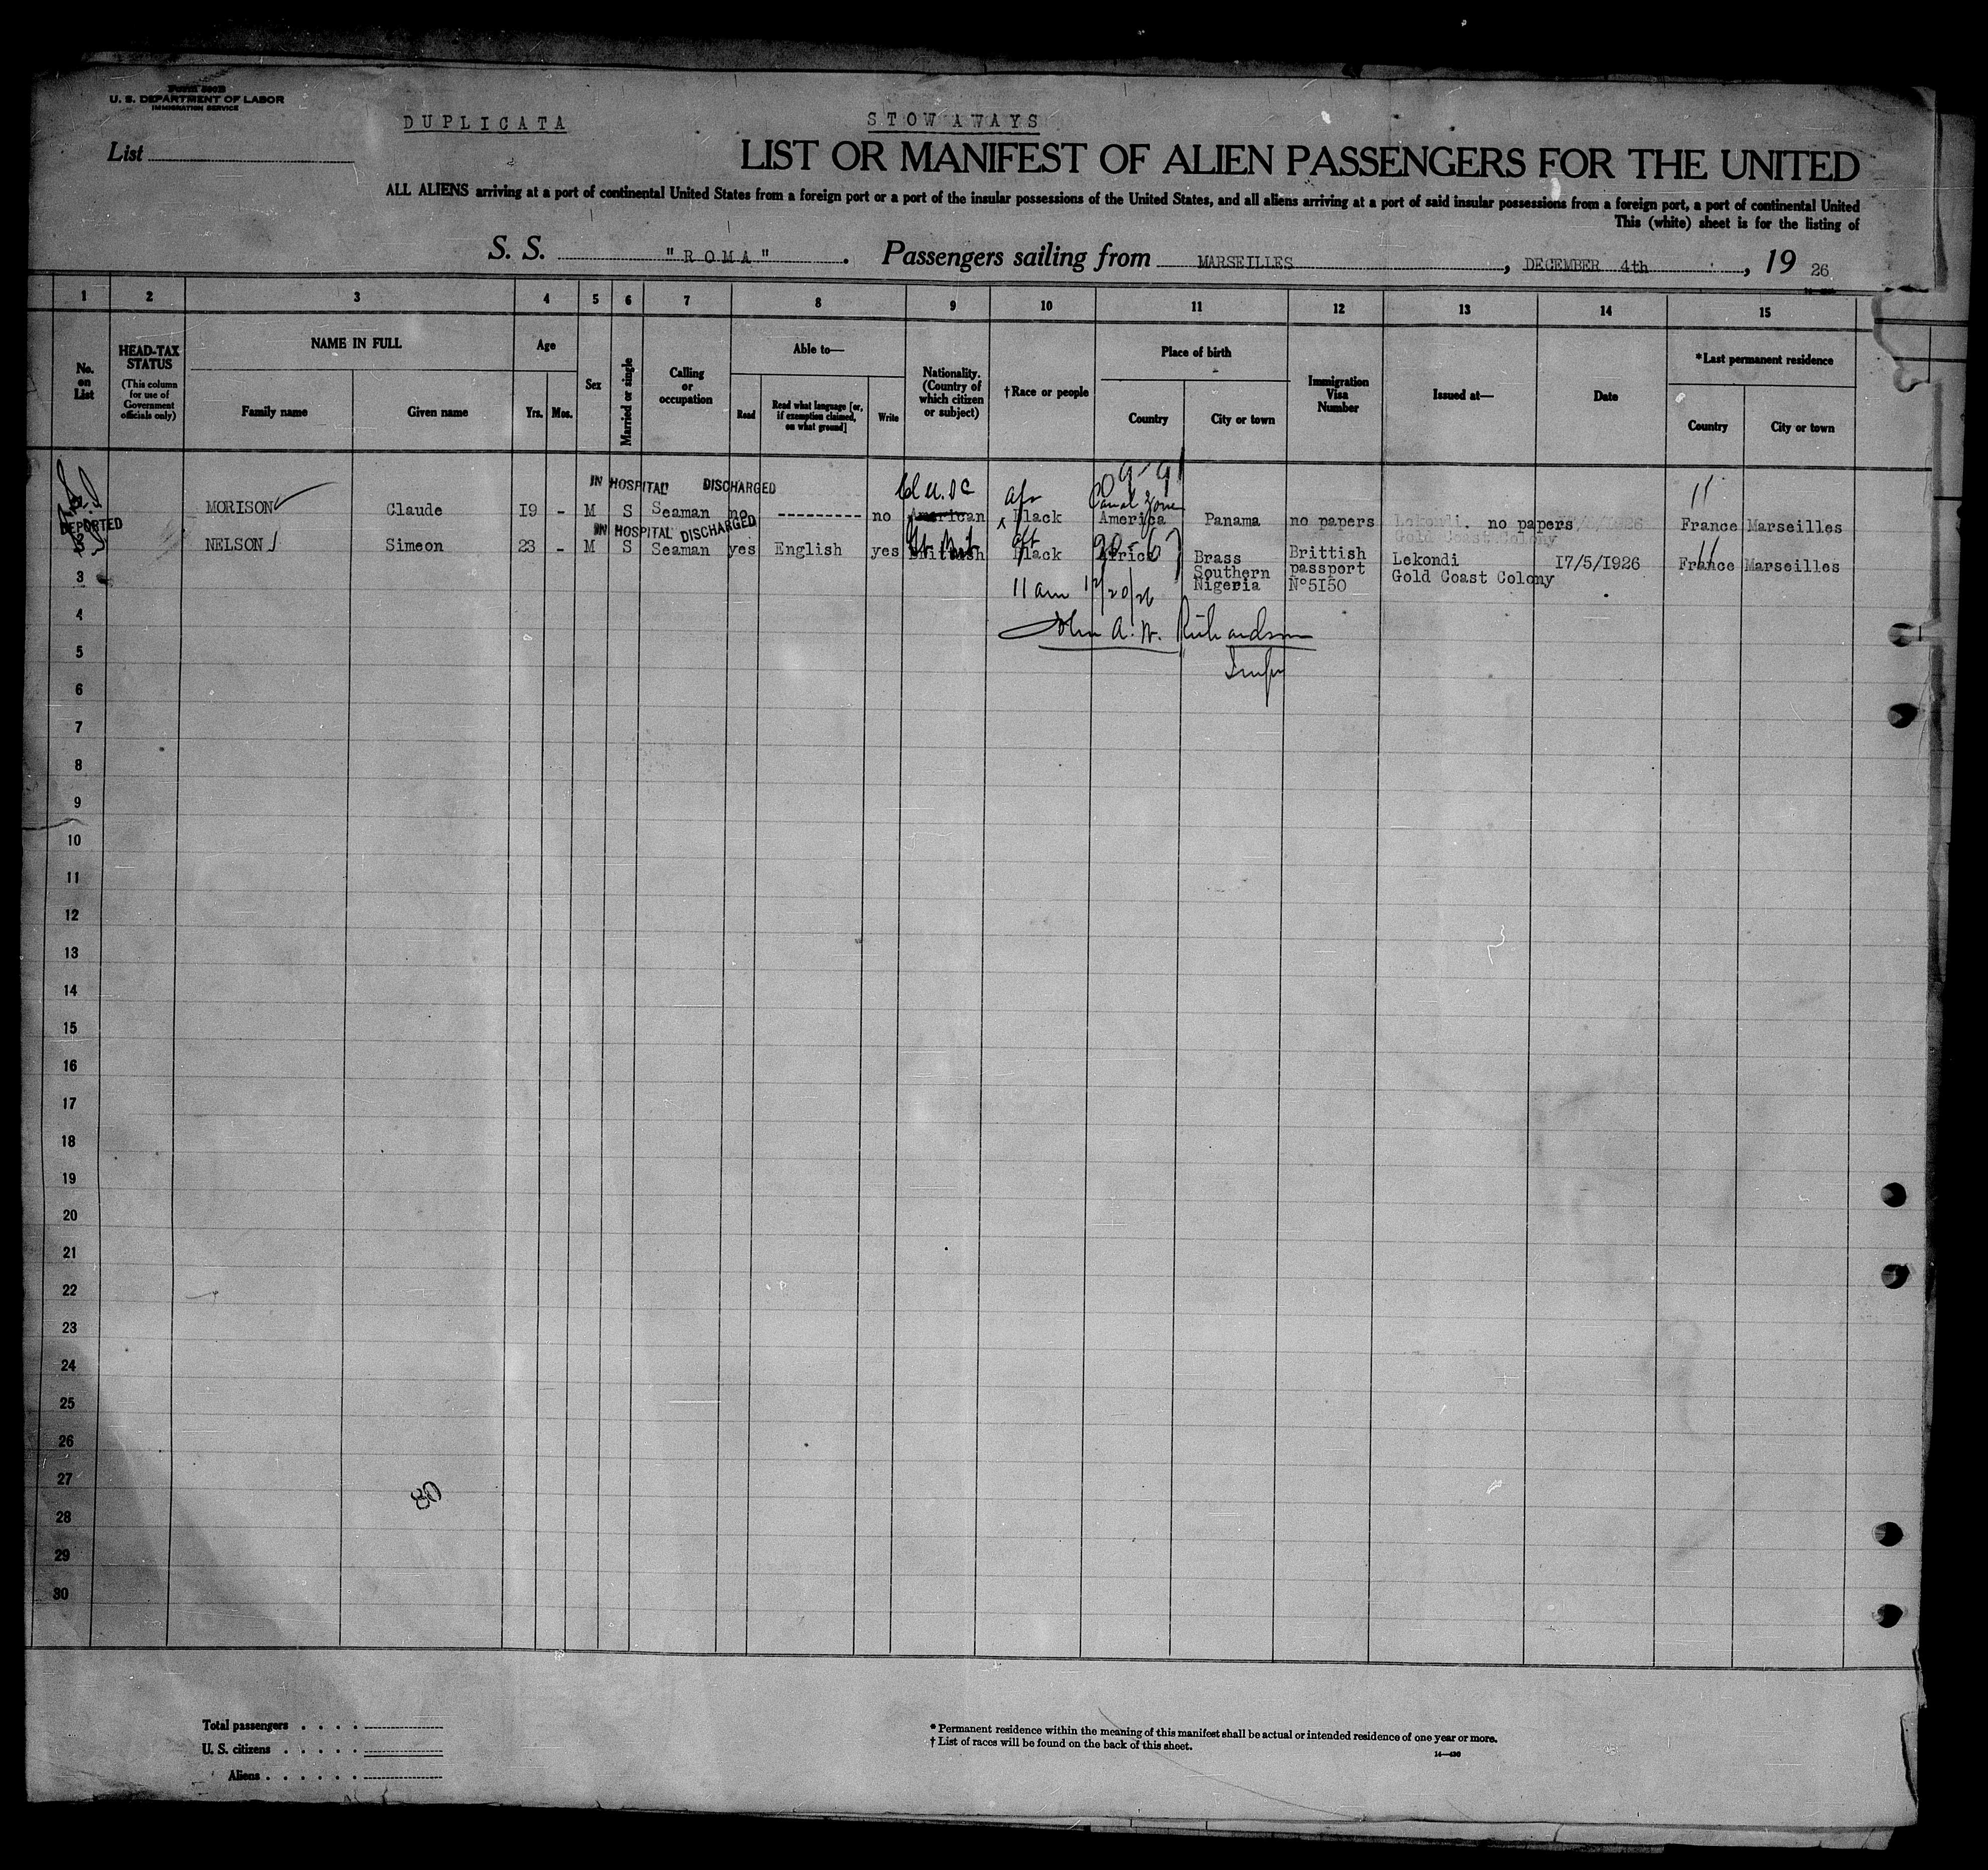 Form 500B
U. S. DEPARTMENT OF LABOR
IMMIGRATION SERVICE
DUPLICATA
STOWAWAYS
List
LIST OR MANIFEST OF ALIEN PASSENGERS FOR THE UNITED
ALL ALIENS arriving at a port of continental United States from a foreign port or a port of the insular possessions of the United States, and all aliens arriving at a port of said insular possessions from a foreign port, a port of continental United
This (white) sheet is for the listing of
S. S. "ROMA". Passengers sailing from MARSEILLES, DECEMBER 4th, 19 26
1 2 3 4 5 6 7 8 9 10 11 12 13 14 15
No. on List
HEAD-TAX STATUS
(This column for use of Government officials only)
NAME IN FULL
Family name
Given name
Age
Yrs.
Mos.
Sex
Married or single
Calling or occupation
Able to—
Read
Read what language [or, if exemption claimed, on what ground]
Write
Nationality. (Country of which citizen or subject)
†Race or people
Place of birth
Country
City or town
Immigration Visa Number
Issued at—
Date
*Last permanent residence
Country
City or town
IN HOSPITAL DISCHARGED
Canal Zone
MORISON Claude I9 - M S Seaman no --------- no American Black America Panama no papers Lekondi. no papers 1926 France Marseilles
Gold Coast Colony
DEPORTED
IN HOSPITAL DISCHARGED
NELSON Simeon 23 - M S Seaman yes English yes Brittish Black Africa Brass Southern Nigeria Brittish passport N°5I50 Lekondi Gold Coast Colony I7/5/I926 France Marseilles
11 am 12/20/26
John A. W. Richardson
Inspr
3
4
5
6
7
8
9
10
11
12
13
14
15
16
17
18
19
20
21
22
23
24
25
26
27
28
29
30
80
Total passengers . . . .
U. S. citizens . . . . .
Aliens . . . . . .
* Permanent residence within the meaning of this manifest shall be actual or intended residence of one year or more.
† List of races will be found on the back of this sheet.
14—430